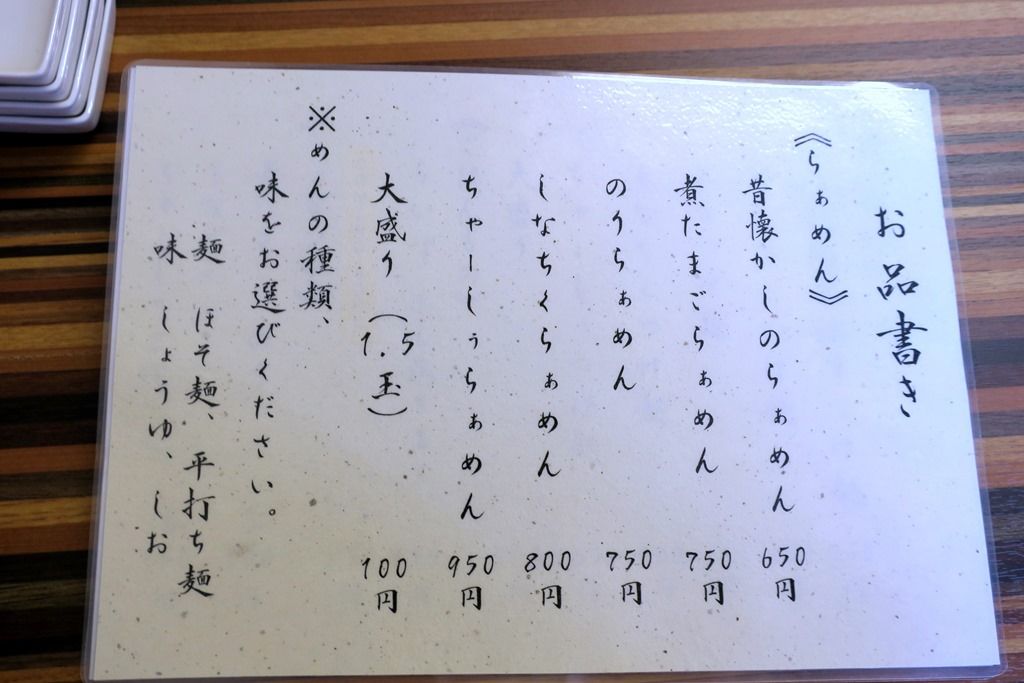 お品書き
《らぁめん》
昔懐かしのらぁめん 650円
煮たまごらぁめん 750円
のりらぁめん 750円
しなちくらぁめん 800円
ちゃーしぅらぁめん 950円
大盛り(1.5玉) 100円
※めんの種類、
味をお選びください。
麺 ほそ麺、平打ち麺
味 しょうゆ、しお